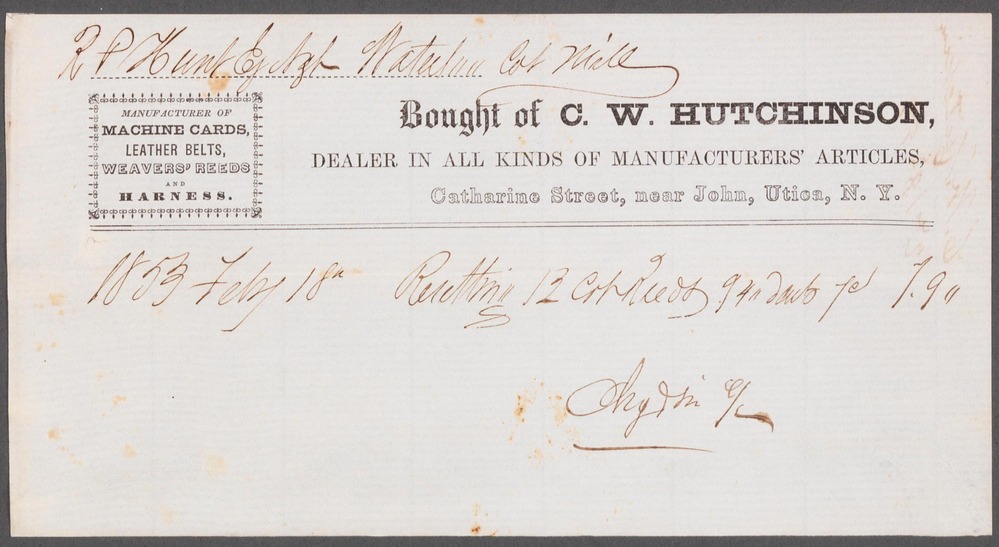 R P Hunt Waterloo Cot Mill
MANUFACTURER OF
MACHINE CARDS,
LEATHER BELTS,
WEAVERS' REEDS
AND
HARNESS.
Bought of C. W. HUTCHINSON,
DEALER IN ALL KINDS OF MANUFACTURERS' ARTICLES,
Catharine Street, near John, Utica, N. Y.
1853 Feby 18 12 Cot Reeds